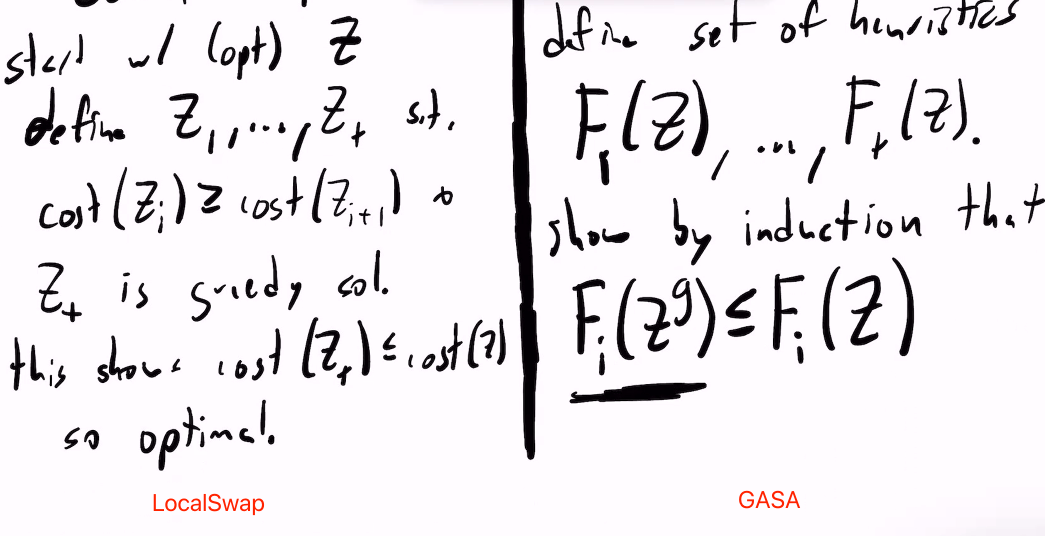 start w/ (opt) Z
define Z₁, ..., Z_t s.t.
cost(Z_i) ≥ cost(Z_{i+1}) &
Z_t is greedy sol.
this shows cost(Z_t) ≤ cost(Z)
so optimal.
LocalSwap
define set of heuristics
F₁(Z), ..., F_t(Z).
show by induction that
F_i(Z^g) ≤ F_i(Z)
GASA